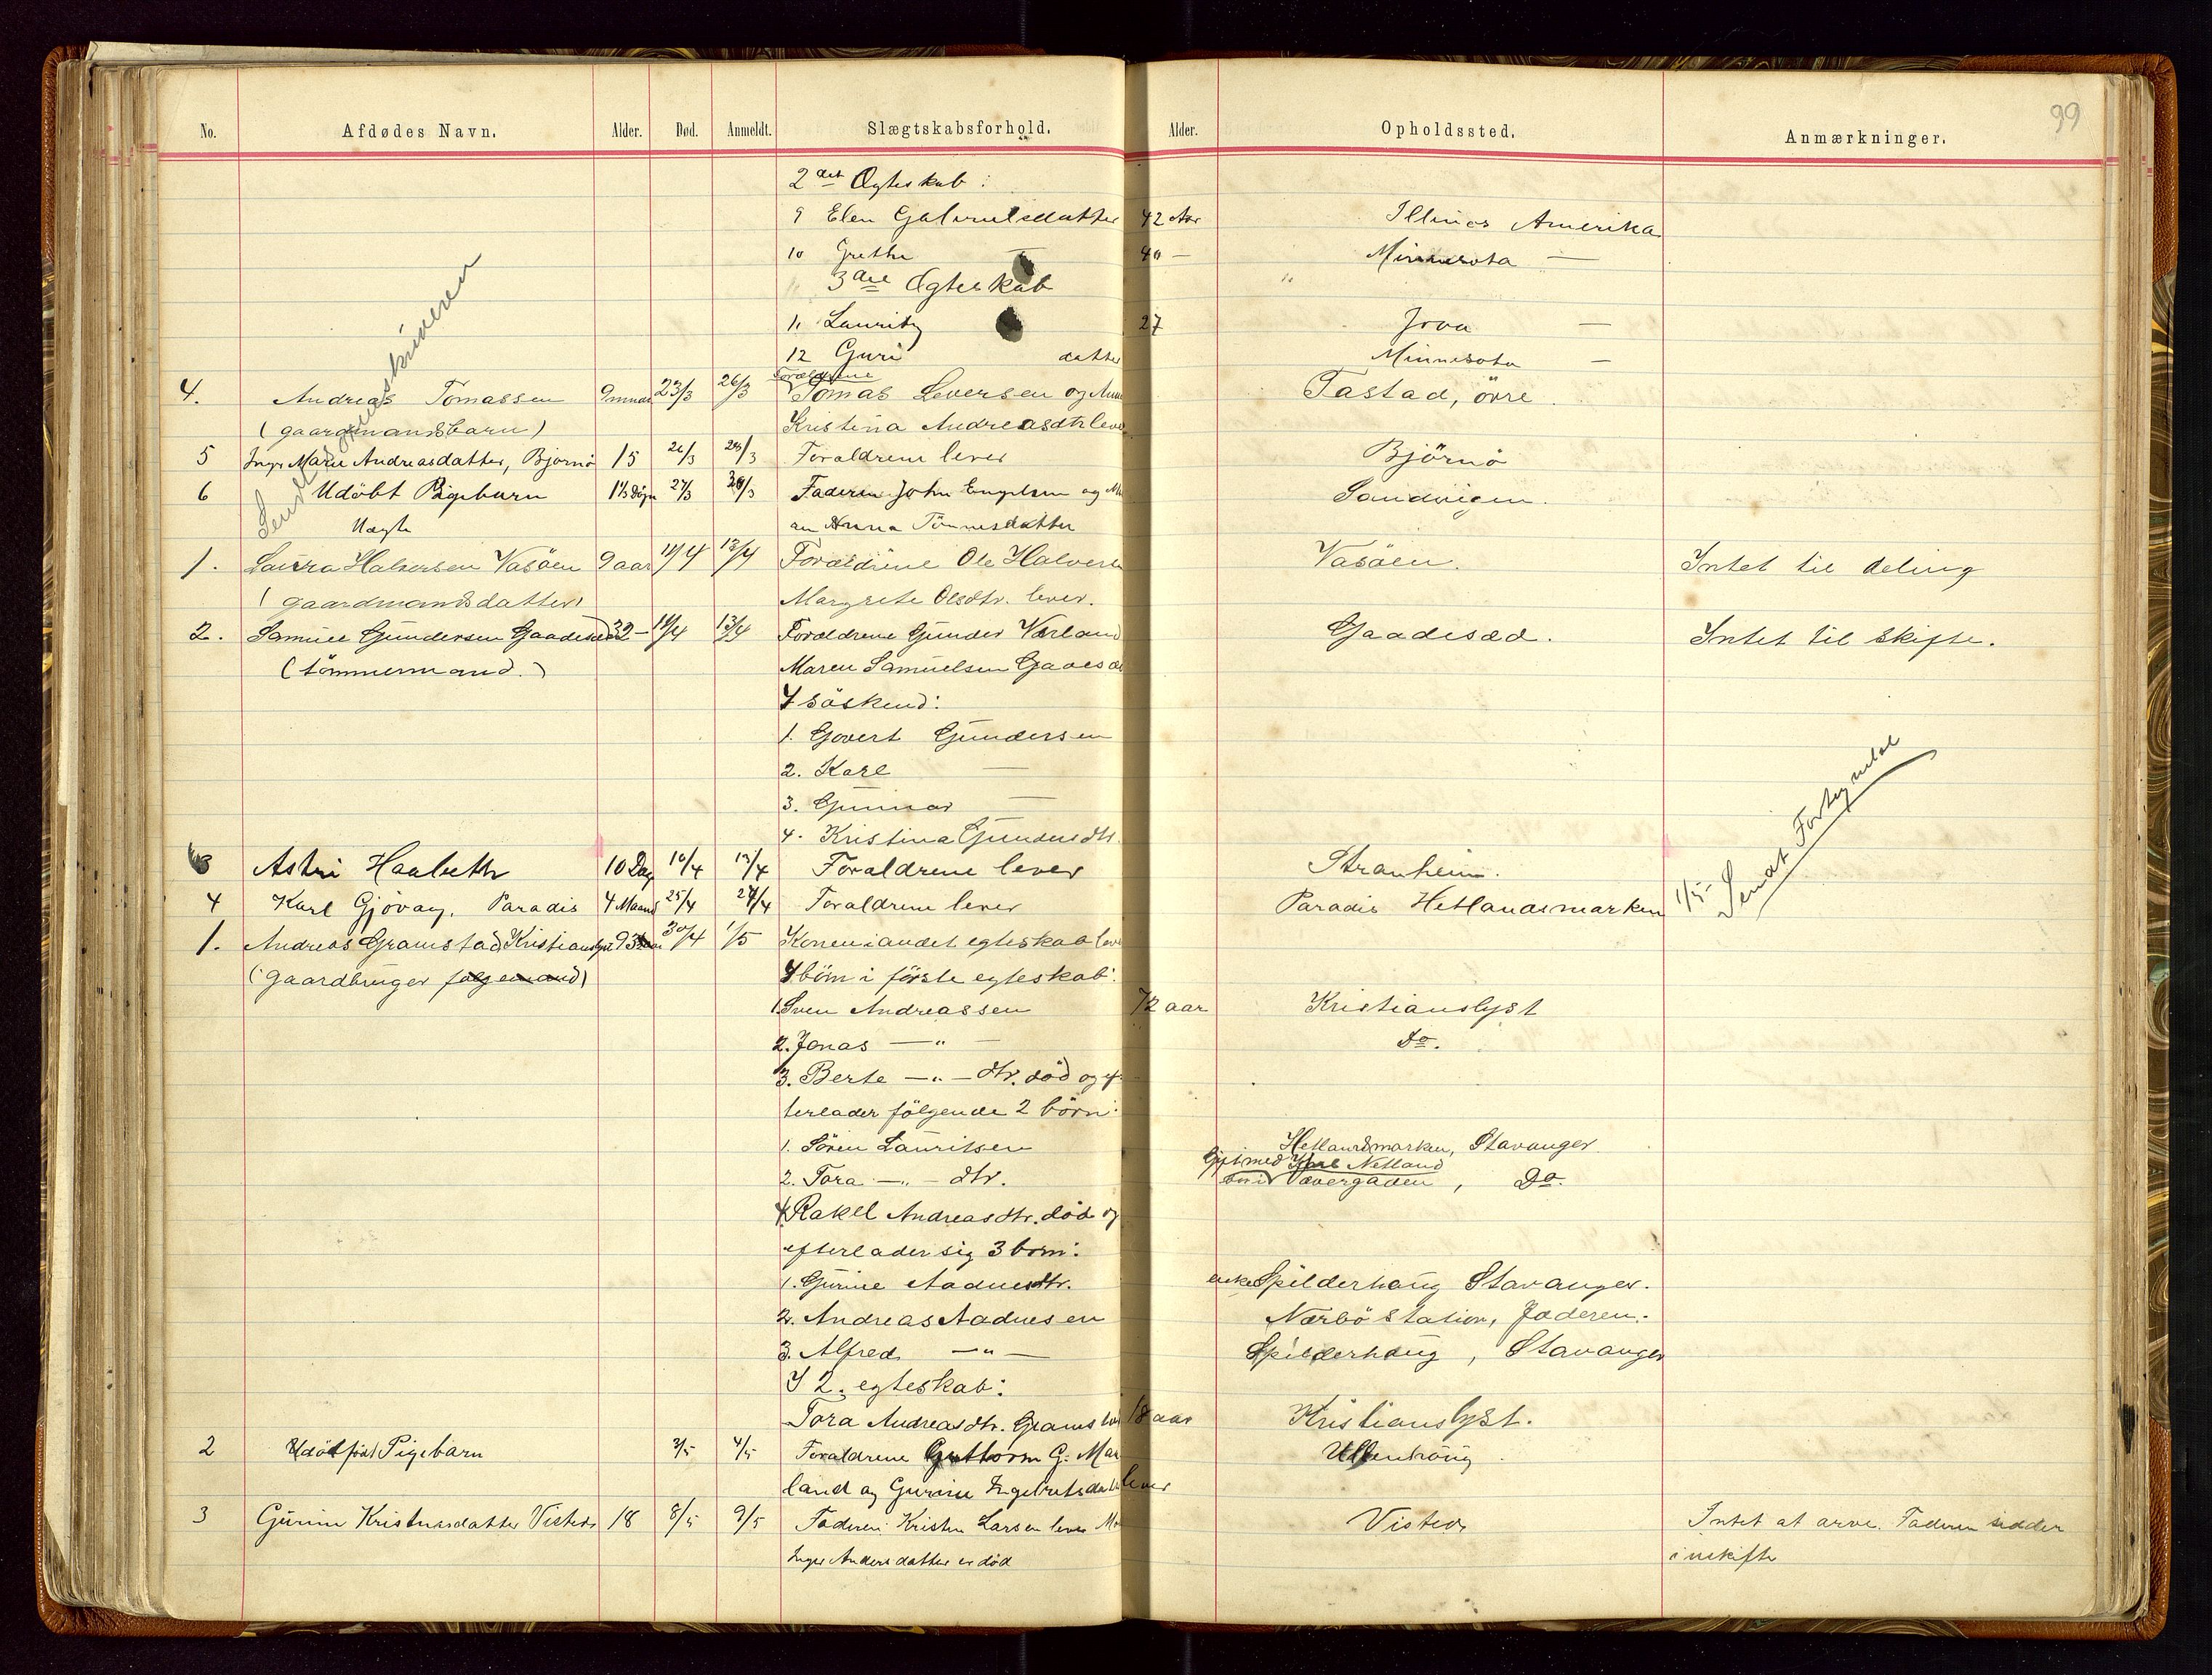 99
No. Afdødes Navn. Alder. Død. Anmeldt. Slægtskabsforhold. Alder. Opholdssted. Anmærkninger.
2det Ægteskab:
9 Elen Gabrielsdatter 42 Aar Illinos Amerika
10 Grethe — 40 — Minnesota —
3die Ægteskab
11 Lauritz 27 Iova —
12 Guri datter Minnesota —
Forældrene
4. Andreas Tomassen 9 mnd 23/3 26/3 Tomas Seversen og Anna Tastad, övre
(gaardmandsbarn) Kristina Andreasdtr lever
5 Inger Marie Andreasdatter, Bjørnø 15 26/3 28/3 Forældrene lever Björnö
6 Udöbt Pigebarn 1½ Dögn 27/3 30/3 Faderen John Engelsen og Sandvigen.
Uægte Anna Tönnesdatter
Sendt Sorenskriveren
1. Laura Halversen Vasöen 9 aar 11/4 13/4 Forældrene Ole Halversen Vasöen. Intet til deling
(gaardmandsdatter) Margrete Olsdtr. lever.
2. Samuel Gundersen Gaadesæd 32 — 11/4 13/4 Forældrene Gunder Værland Gaadesæd. Intet til skifte.
(tömmermand.) Maren Samuelsen Gaadesæd
4 söskend:
1. Govert Gundersen
2. Karl —
3. Gunnar —
4. Kristina Gundersdtr.
3 Astri Haabeth 10 Dag 10/4 13/4 Forældrene lever Stranheim.
4 Karl Gjövaag, Paradis 4 Maand 25/4 27/4 Forældrene lever Paradis Hetlandsmarken 1/5 Sendt Fortegnelse
1. Andreas Gramstad Kristianslyst 93 aar 30/4 1/5 Konen i andet egteskab lever
(gaardbruger følgemand) 4 börn i förste egteskab:
1. Sven Andreassen 72 aar Kristianslyst
2. Jonas — " — Do.
3. Berte — " — dtr. död og ef-
terlader fölgende 2 börn:
1. Sören Lauritsen Hetlandsmarken, Stavanger
2. Tora — " — dtr. Gift med Karl Netland Vævergaden, Do.
4. Rakel Andreasdtr. död og
efterlader sig 3 börn:
1. Gurine Aadnesdtr. enke Spilderhaug Stavanger.
2. Andreas Aadnesen Nærbö Station, Jæderen.
3. Alfred — " — Spilderhaug, Stavanger
I 2. egteskab:
Tora Andreasdtr. Gramstad 18 aar Kristianslyst.
2 Udödt Pigebarn 3/5 4/5 Forældrene Guttorm G. Mar- Ullenhaug
land og Gurine Ingebretsdatter lever
3 Gurine Kristensdatter Visted 18 8/5 9/5 Faderen Kristen Larsen lever Visted Intet at arve. Faderen sidder
Inger Andersdatter er död i uskifte